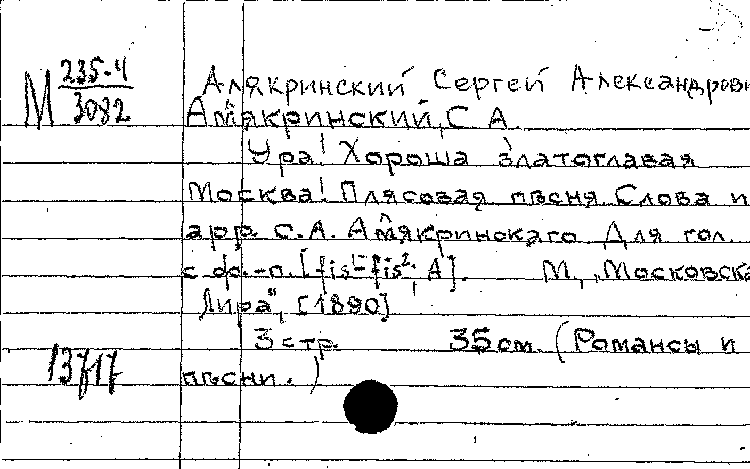 М 235-4
3082
Алякринский Сергей Александрови
Алякринский, С А
Ура! Хороша златоглавая
Москва! Плясовая пѣсня Слова и
арр. С.А. Алякринскаго Для гол.
с фо.-п. [fis¹-fis²; А]. М., „Московска
Лира", [1890]
3 стр. 35 см. (Романсы и
13717
пѣсни.)